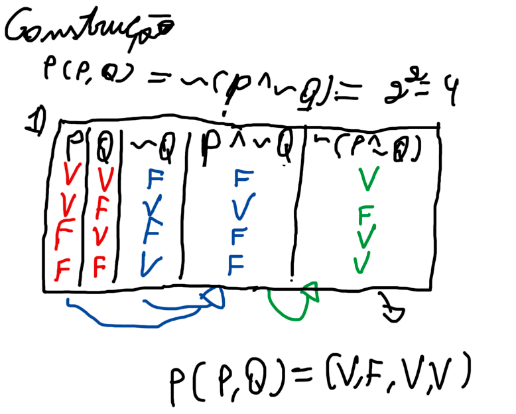 Construção
P(P,Q) = ~(p^~Q) = 2² = 4
1)
P Q ~Q P^~Q ~(P^~Q)
V V F F V
V F V V F
F V F F V
F F V F V
P(P,Q) = (V,F,V,V)